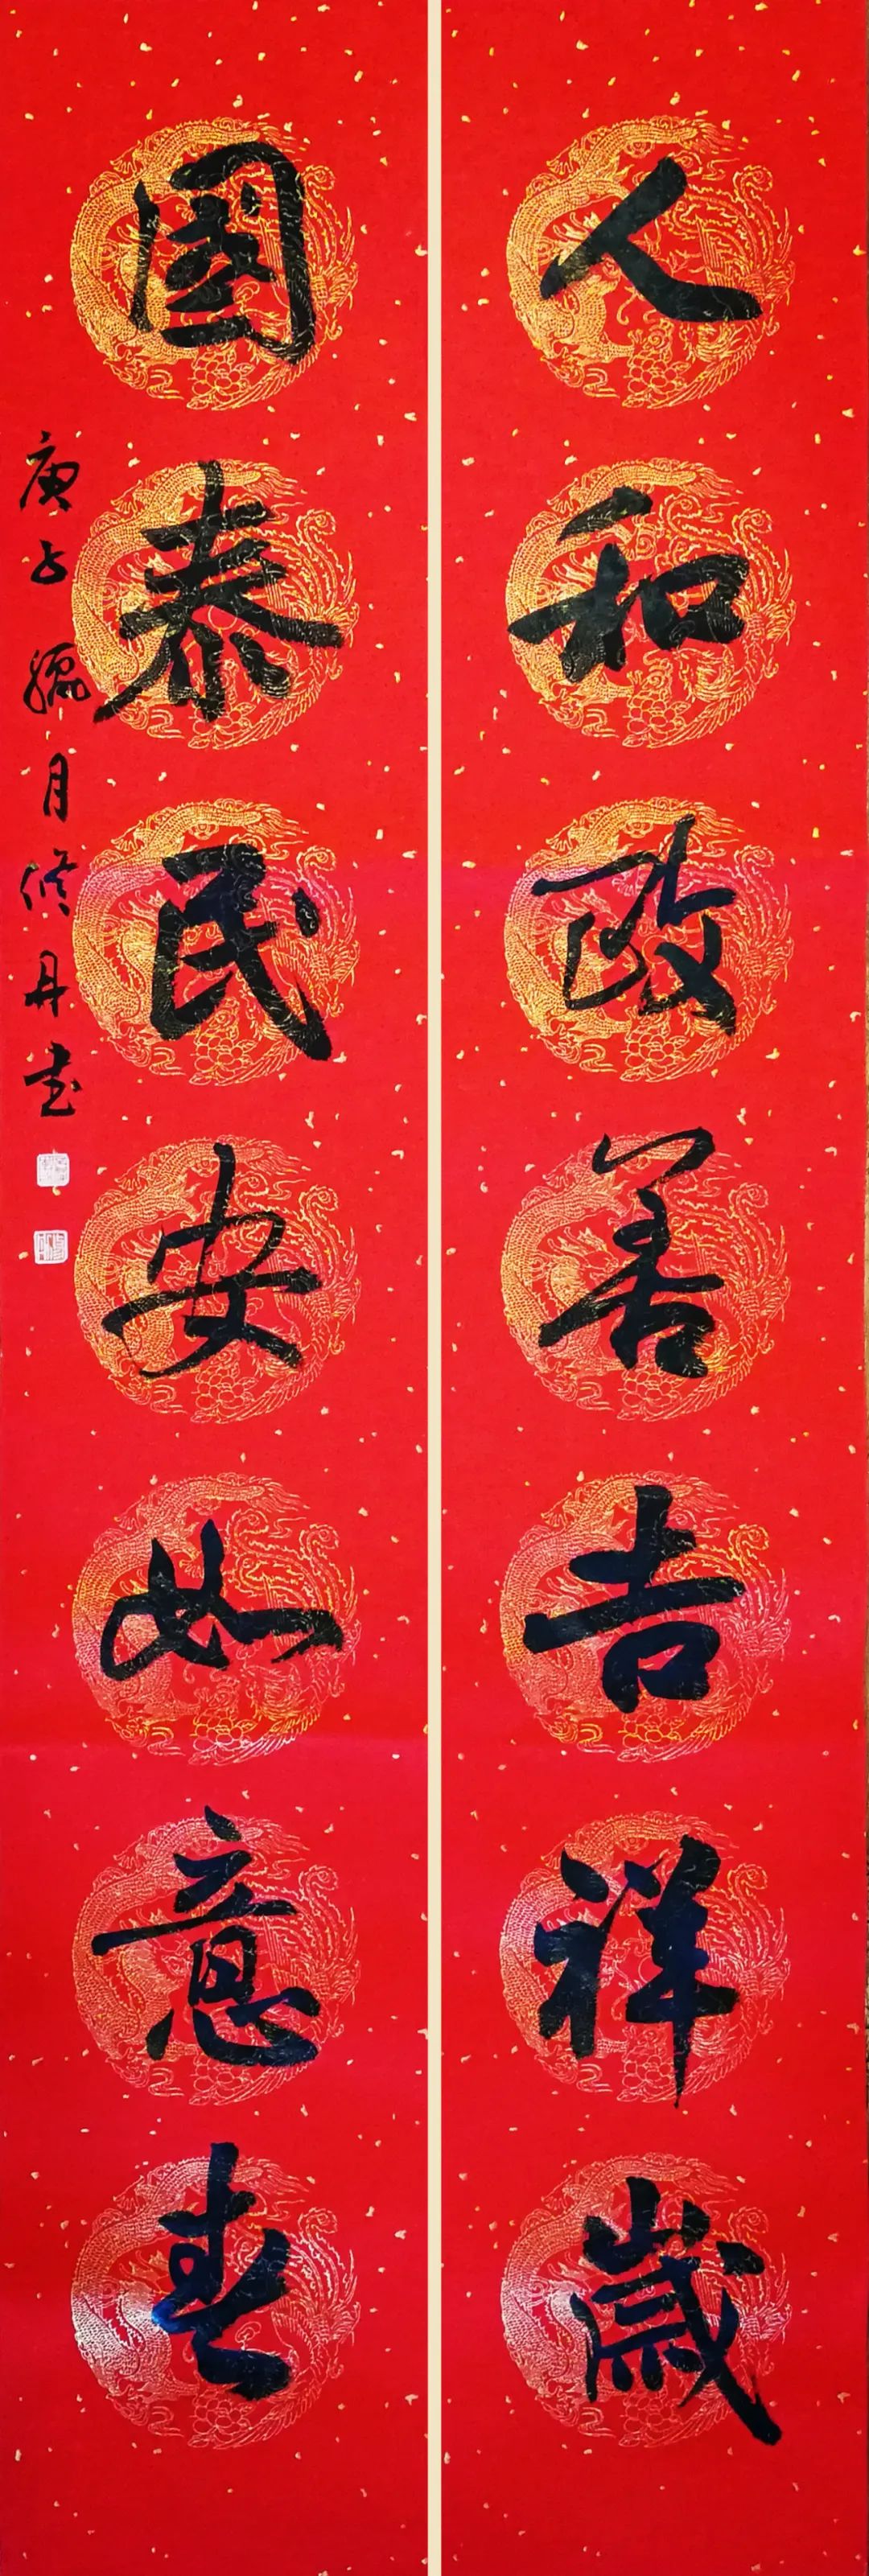 人和政善吉祥歲
國泰民安如意春
庚子臘月修丹书